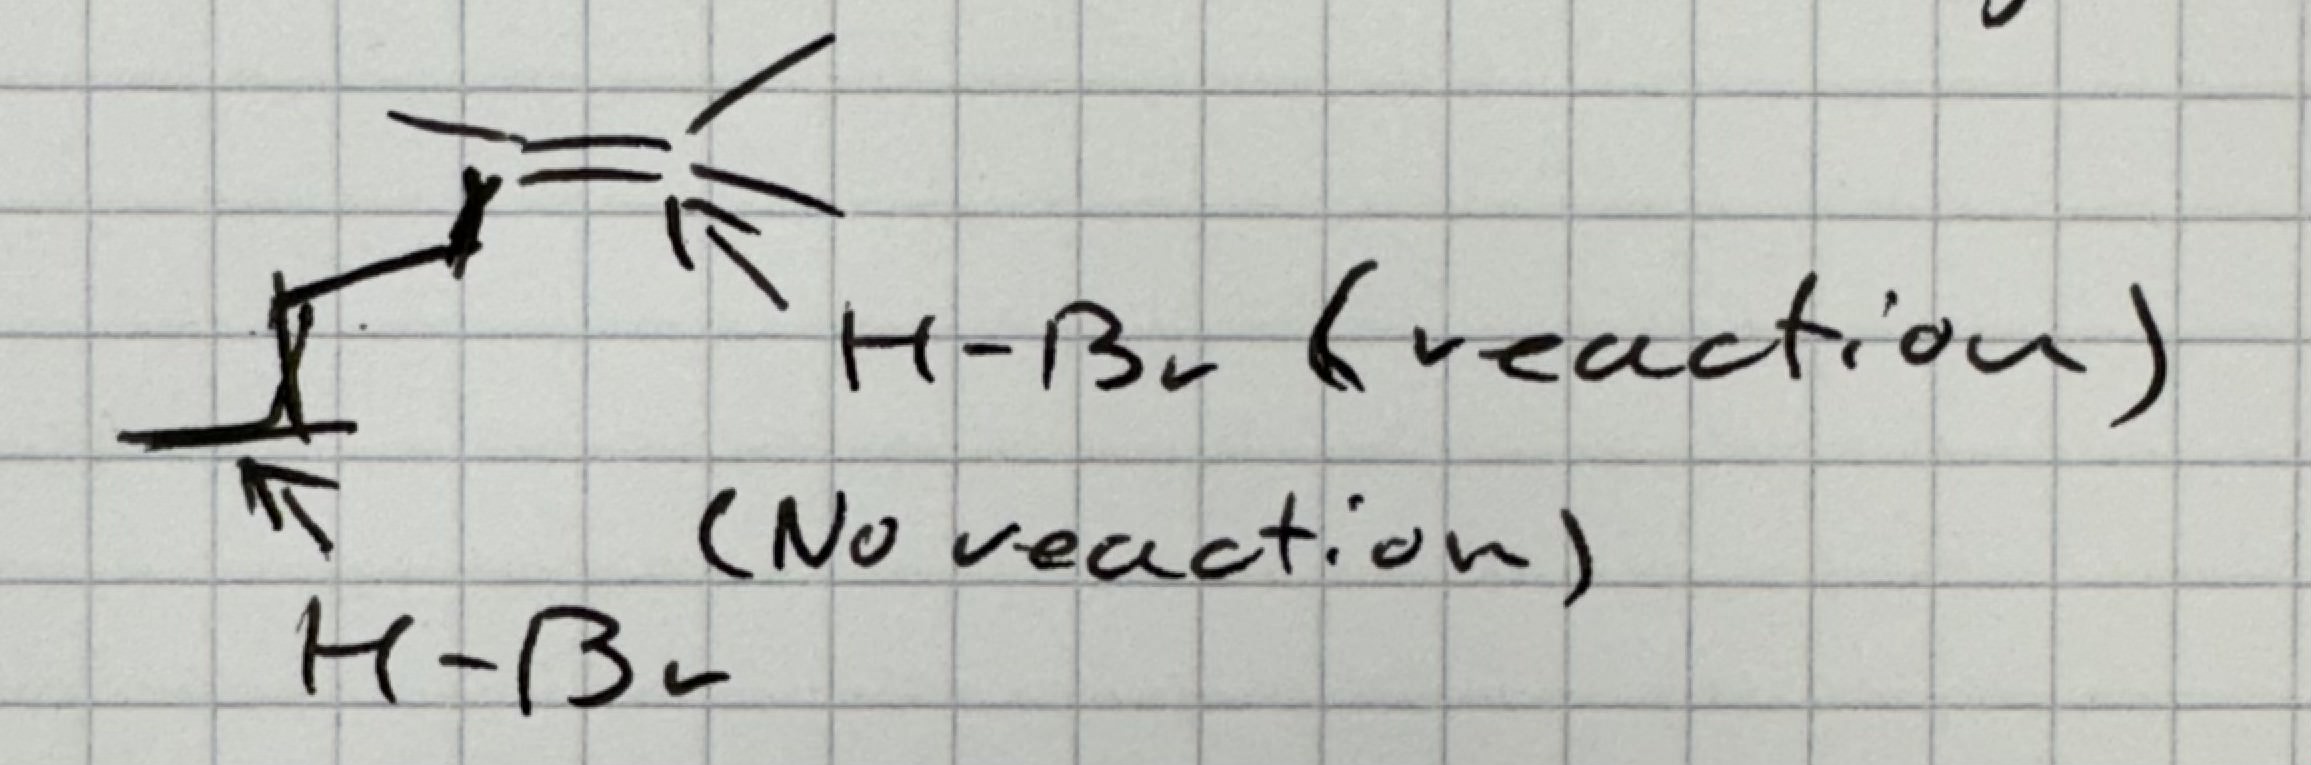 H-Br (reaction)
(No reaction)
H-Br